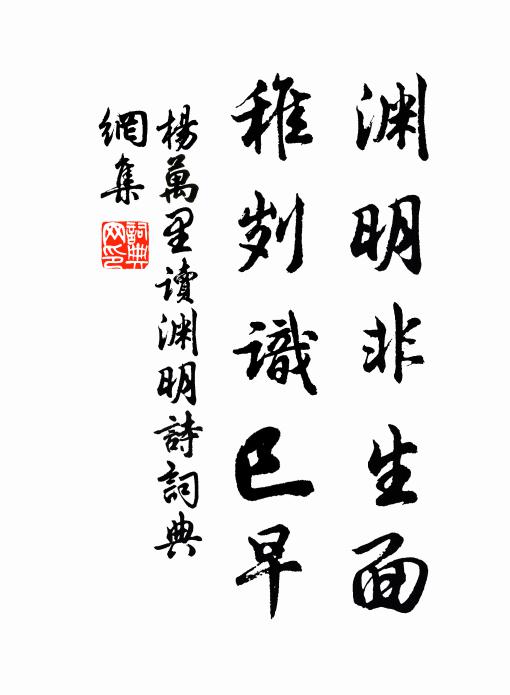 渊明非生面
稚岁識已早
楊萬里读渊明詩詞典
網集
詞典
网印